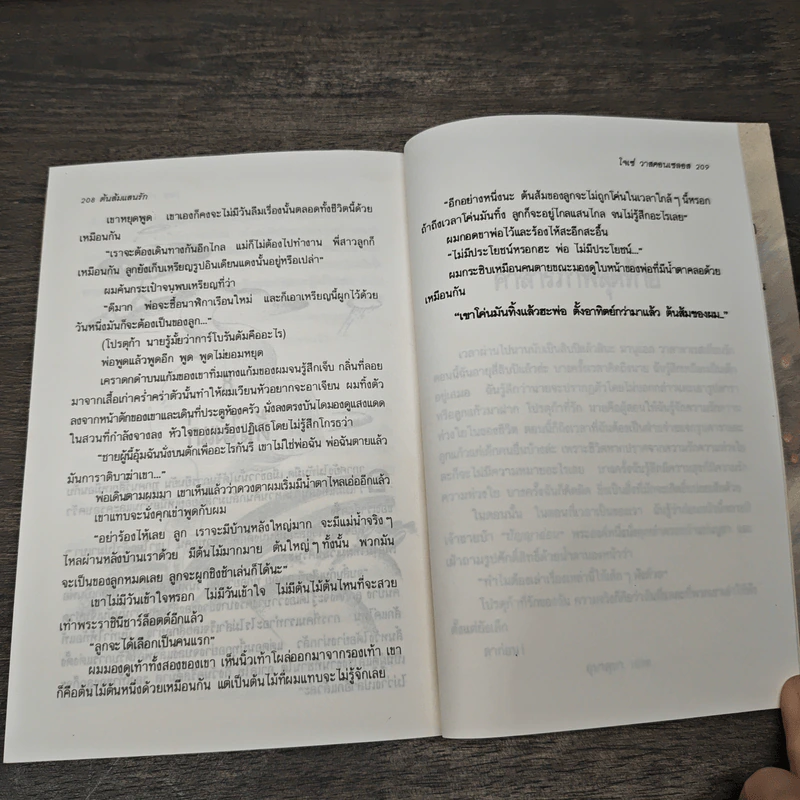 208 ต้นส้มแสนรัก
เขาหยุดพูด เขาเองก็คงจะไม่มีวันลืมเรื่องนั้นตลอดทั้งชีวิตนี้ด้วย
เหมือนกัน
"เราจะต้องเดินทางกันอีกไกล แม่ก็ไม่ต้องไปทำงาน พี่สาวลูกก็
เหมือนกัน ลูกยังเก็บเหรียญรูปอินเดียนแดงนั้นอยู่หรือเปล่า"
ผมค้นกระเป๋าจนพบเหรียญที่ว่า
"ดีมาก พ่อจะซื้อนาฬิกาเรือนใหม่ และก็เอาเหรียญนี้ผูกไว้ด้วย
วันหนึ่งมันก็จะต้องเป็นของลูก..."
(โปรตุก้า นายรู้มั้ยว่าการ์โบรันดัมคืออะไร)
พ่อพูดแล้วพูดอีก พูด พูดไม่ยอมหยุด
เคราดกดำบนแก้มของเขาทิ่มแทงแก้มของผมจนรู้สึกเจ็บ กลิ่นที่ลอย
มาจากเสื้อเก่าคร่ำคร่าตัวนั้นทำให้ผมเวียนหัวอยากจะอาเจียน ผมทิ้งตัว
ลงจากหน้าตักของเขาและเดินที่ประตูห้องครัว นั่งลงตรงบันไดมองดูแสงแดด
ในสวนที่กำลังจางลง หัวใจของผมร้องปฏิเสธโดยไม่รู้สึกโกรธว่า
"ชายผู้นี้อุ้มฉันนั่งบนตักเพื่ออะไรกันรึ เขาไม่ใช่พ่อฉัน พ่อฉันตายแล้ว
มันการาติบาฆ่าเขา..."
พ่อเดินตามผมมา เขาเห็นแล้วว่าดวงตาผมเริ่มมีน้ำตาไหลเอ่ออีกแล้ว
เขาแทบจะนั่งคุกเข่าพูดกับผม
"อย่าร้องไห้เลย ลูก เราจะมีบ้านหลังใหญ่มาก จะมีแม่น้ำจริงๆ
ไหลผ่านหลังบ้านเราด้วย มีต้นไม้มากมาย ต้นใหญ่ๆ ทั้งนั้น พวกมัน
จะเป็นของลูกหมดเลย ลูกจะผูกชิงช้าเล่นก็ได้นะ"
เขาไม่มีวันเข้าใจหรอก ไม่มีวันเข้าใจ ไม่มีต้นไม้ต้นไหนที่จะสวย
เท่าพระราชินีชาร์ล็อตต์อีกแล้ว
"ลูกจะได้เลือกเป็นคนแรก"
ผมมองดูเท้าทั้งสองของเขา เห็นนิ้วเท้าโผล่ออกมาจากรองเท้า เขา
ก็คือต้นไม้ต้นหนึ่งด้วยเหมือนกัน แต่เป็นต้นไม้ที่ผมแทบจะไม่รู้จักเลย
โจเซ่ วาสคอนเซลอส 209
"อีกอย่างหนึ่งนะ ต้นส้มของลูกจะไม่ถูกโค่นในเวลาใกล้ๆ นี้หรอก
ถ้าถึงเวลาโค่นมันทิ้ง ลูกก็จะอยู่ไกลแสนไกล จนไม่รู้สึกอะไรเลย"
ผมกอดขาพ่อไว้และร้องไห้สะอึกสะอื้น
"ไม่มีประโยชน์หรอกฮะ พ่อ ไม่มีประโยชน์..."
ผมกระซิบเหมือนคนตายขณะมองดูใบหน้าของพ่อที่มีน้ำตาคลอด้วย
เหมือนกัน
"เขาโค่นมันทิ้งแล้วฮะพ่อ ตั้งอาทิตย์กว่ามาแล้ว ต้นส้มของผม..."